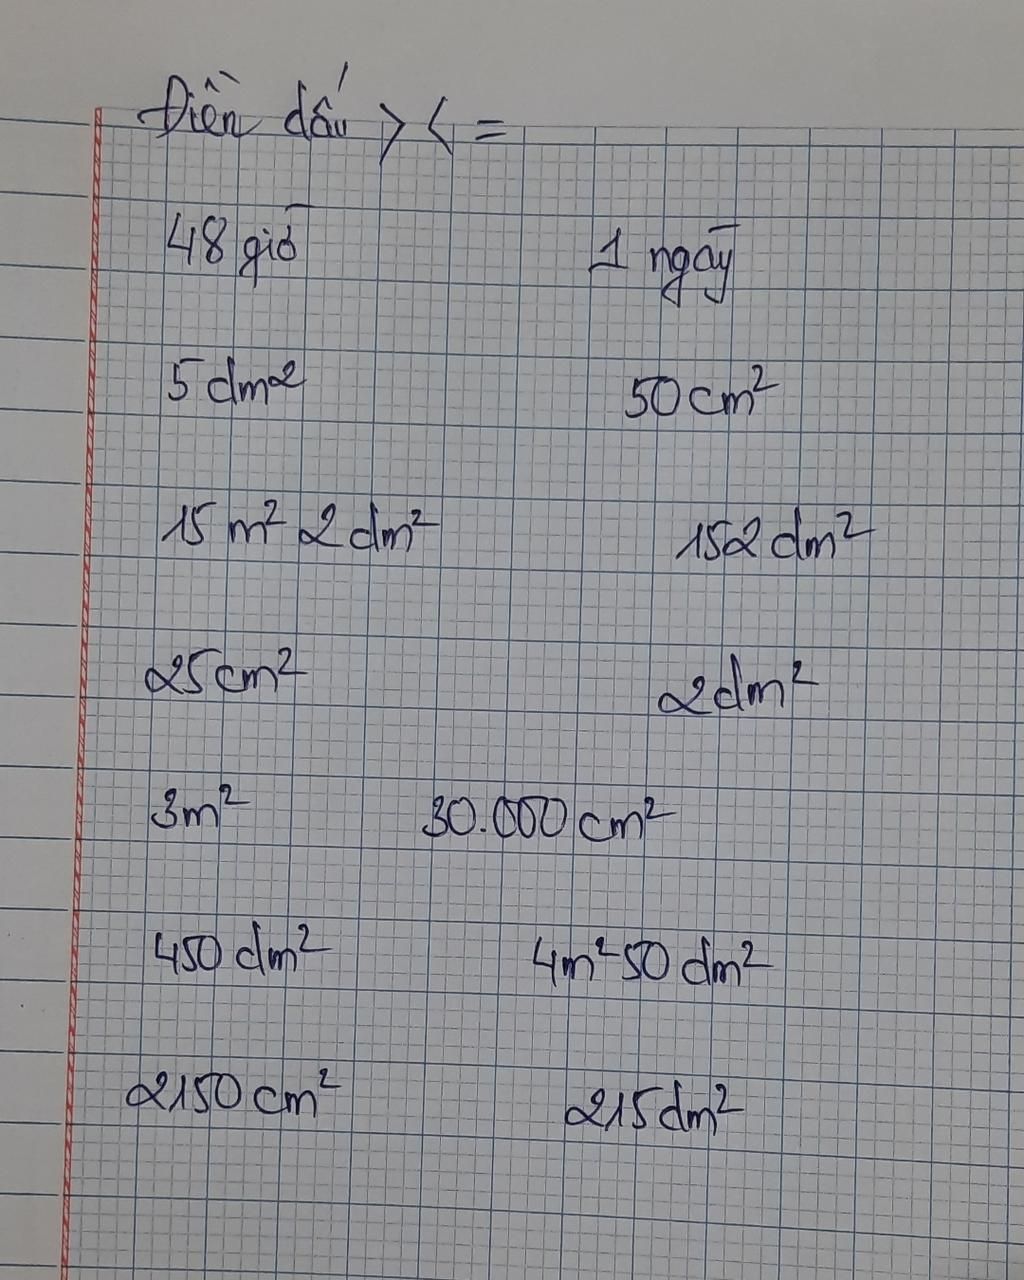 Điền dấu > < =
48 giờ 1 ngày
5 dm2 50 cm²
15 m² 2 dm² 152 dm²
25 cm² 2 dm²
3m² 30.000 cm²
450 dm² 4m² 50 dm²
2150 cm² 215 dm²